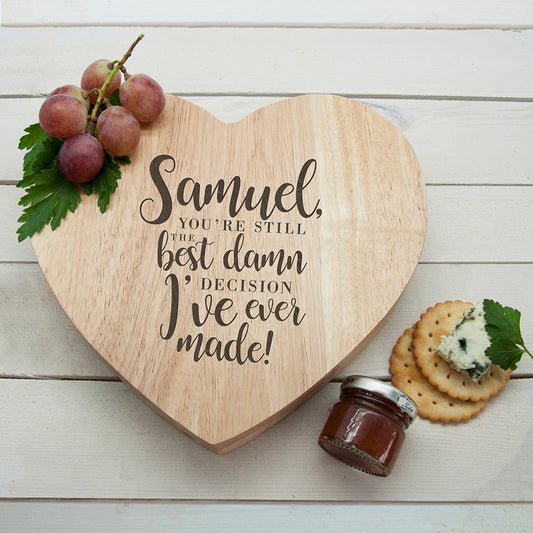 Samuel,
YOU'RE STILL
THE
best damn
DECISION
I've ever
made!